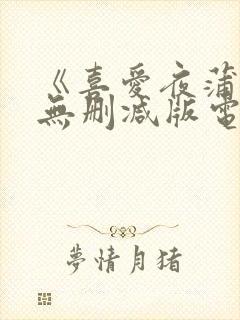 《喜愛夜蒲
無刪減版電
夢情月猪